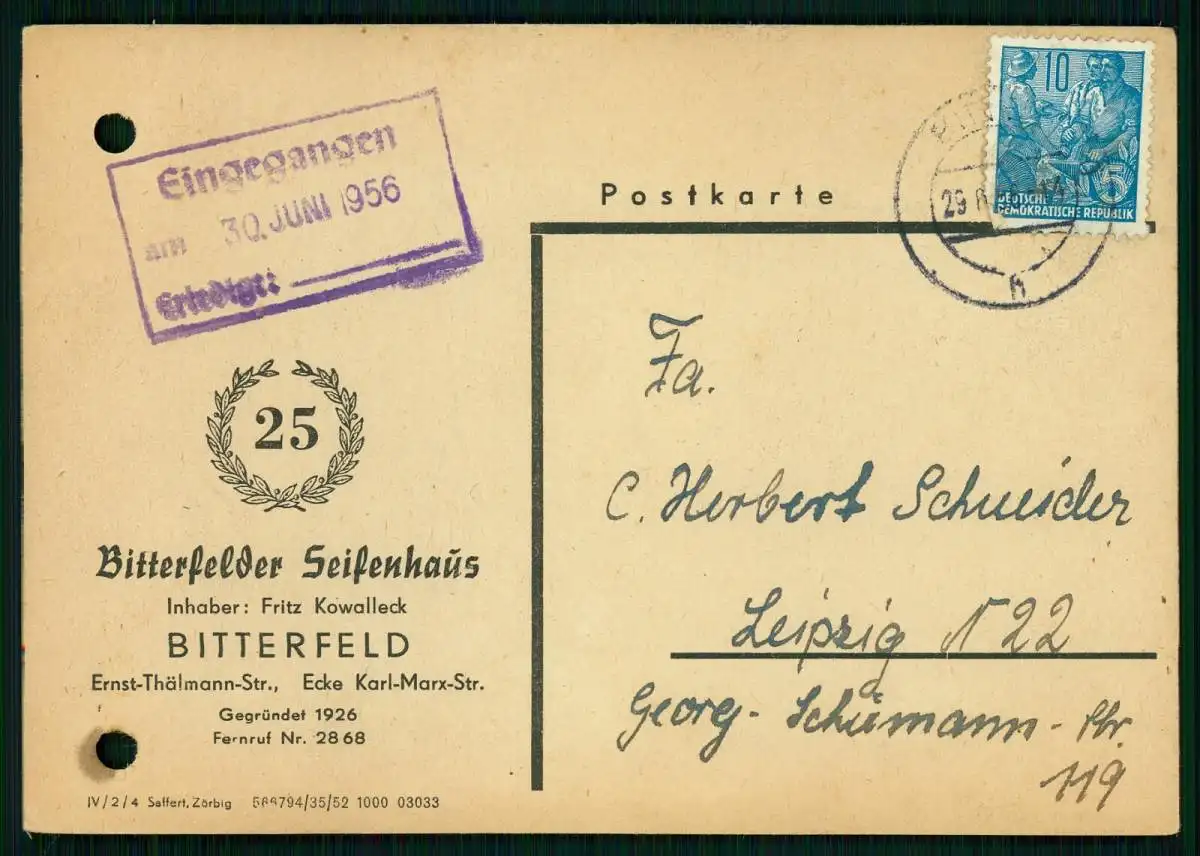 Eingegangen
am 30. JUNI 1956
Erledigt:
25
Bitterfelder Seifenhaus
Inhaber: Fritz Kowalleck
BITTERFELD
Ernst-Thälmann-Str., Ecke Karl-Marx-Str.
Gegründet 1926
Fernruf Nr. 2868
IV/2/4 Saffert, Zörbig 566794/35/52 1000 03033
Postkarte
10
5
DEUTSCHE
DEMOKRATISCHE REPUBLIK
29.6.
h
Fa.
C. Herbert Schneider
Leipzig N 22
Georg-Schumann-Str.
119